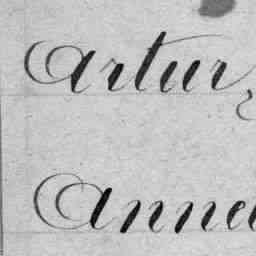 Artur,
Anna